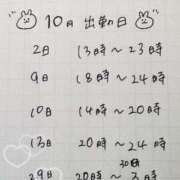 10月 出勤日
2日 13時〜23時
9日 18時〜24時
10日 14時〜20時
13日 20時〜24時
30日
29日 20時〜3時